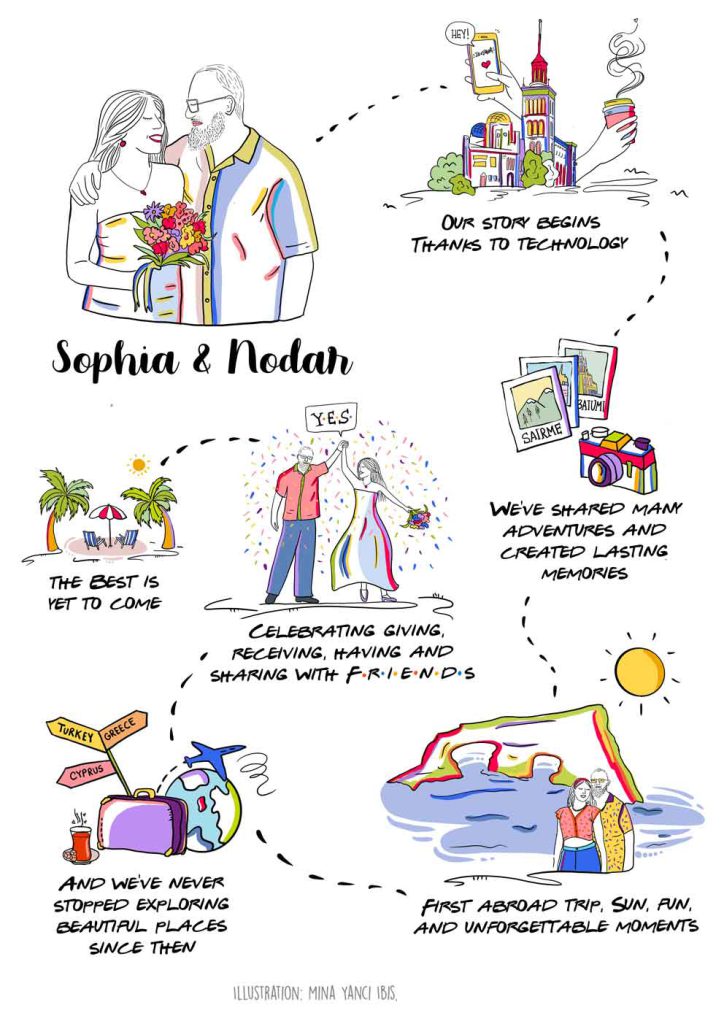 Sophia & Nodar
HEY!
OUR STORY BEGINS
THANKS TO TECHNOLOGY
SAIRME
BATUMI
WE'VE SHARED MANY
ADVENTURES AND
CREATED LASTING
MEMORIES
FIRST ABROAD TRIP, SUN, FUN,
AND UNFORGETTABLE MOMENTS
TURKEY
GREECE
CYPRUS
AND WE'VE NEVER
STOPPED EXPLORING
BEAUTIFUL PLACES
SINCE THEN
Y·E·S
CELEBRATING GIVING,
RECEIVING, HAVING AND
SHARING WITH F·R·I·E·N·D·S
THE BEST IS
YET TO COME
ILLUSTRATION: MINA YANCI IBIS.